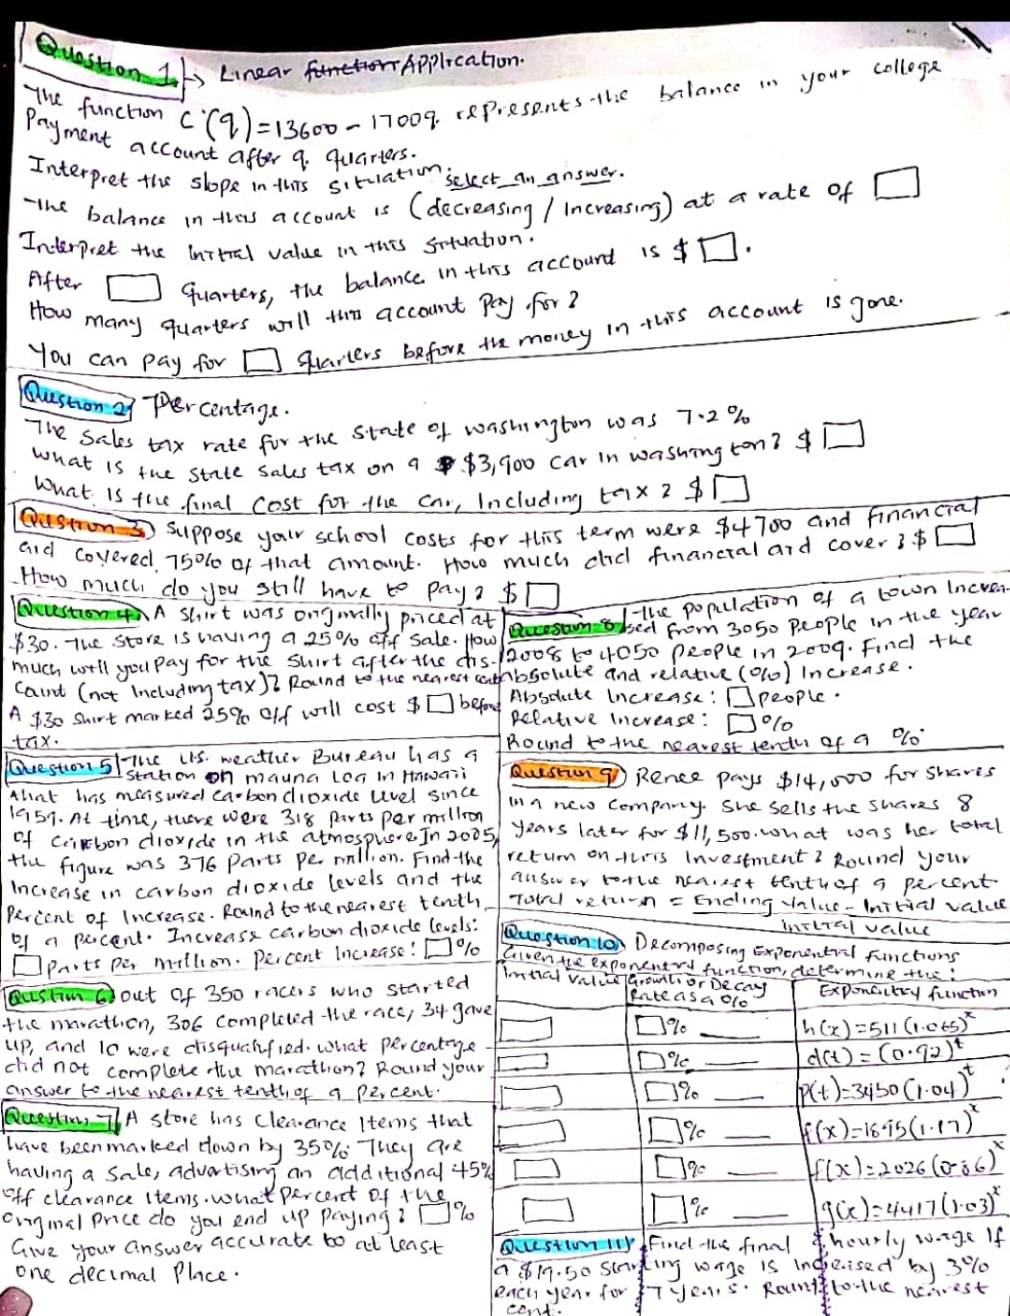 Question 1 → Linear function Application.
The function C(q)=13600-1700q represents the balance in your college
Payment account after q quarters.
Interpret the slope in this situation. select an answer.
The balance in this account is (decreasing / Increasing) at a rate of □
Interpret the initial value in this situation.
After □ quarters, the balance in this account is $ □.
How many quarters will this account pay for?
You can pay for □ quarters before the money in this account is gone.
Question 2 Percentage.
The sales tax rate for the state of washington was 7.2%
what is the state sales tax on a $3,900 car in washington? $ □
What is the final cost for the car, Including tax? $ □
Question 3 Suppose your school costs for this term were $4700 and financial
aid covered 75% of that amount. How much did financial aid cover? $ □
How much do you still have to pay? $ □
Question 4 A Shirt was originally priced at
$30. The store is having a 25% off sale. How
much will you pay for the shirt after the dis-
count (not Including tax)? Round to the nearest cent
A $30 shirt marked 25% off will cost $ □ before
tax.
Question 5 The U.S. weather Bureau has a
station on mauna Loa in Hawaii
that has measured carbon dioxide level since
1959. At time, there were 318 parts per million
of carbon dioxide in the atmosphere. In 2005,
the figure was 376 parts per million. Find the
Increase in carbon dioxide levels and the
percent of Increase. Round to the nearest tenth
of a percent. Increase carbon dioxide levels:
□ parts per million. Percent Increase: □ %
Question 6 out of 350 racers who started
the marathon, 306 completed the race, 34 gave
up, and 10 were disqualified. what percentage
did not complete the marathon? Round your
answer to the nearest tenth of a percent.
Question 7 A store has clearance Items that
have been marked down by 35%. They are
having a sale, advertising an additional 45%
off clearance Items. what percent of the
original price do you end up paying? □ %
Give your answer accurate to at least
one decimal place.
Question 8 The population of a town Increa-
sed from 3050 people in the year
2008 to 4050 people in 2009. Find the
absolute and relative (%) Increase.
Absolute Increase: □ people.
Relative Increase: □ %
Round to the nearest tenth of a %
Question 9 Renee pays $14,000 for shares
in a new company. She sells the shares 8
years later for $11,500. what was her total
return on this Investment? Round your
answer to the nearest tenth of a percent
Total return = Ending value - Initial value
Initial value
Question 10 Decomposing Exponential functions
Given the exponential function, determine the:
Initial value Growth or Decay Exponential function
Rate as a %
□ □% ___ h(x)=511(1.065)^x
□ □% ___ d(t)=(0.92)^t
□ □% ___ P(t)=3450(1.04)^t
□ □% ___ f(x)=1895(1.17)^x
□ □% ___ f(x)=2026(0.86)^x
□ □% ___ g(x)=4417(1.03)^x
Question 11 Find the final hourly wage If
a $19.50 starting wage is Increased by 3%
each year for 7 years. Round to the nearest
cent.